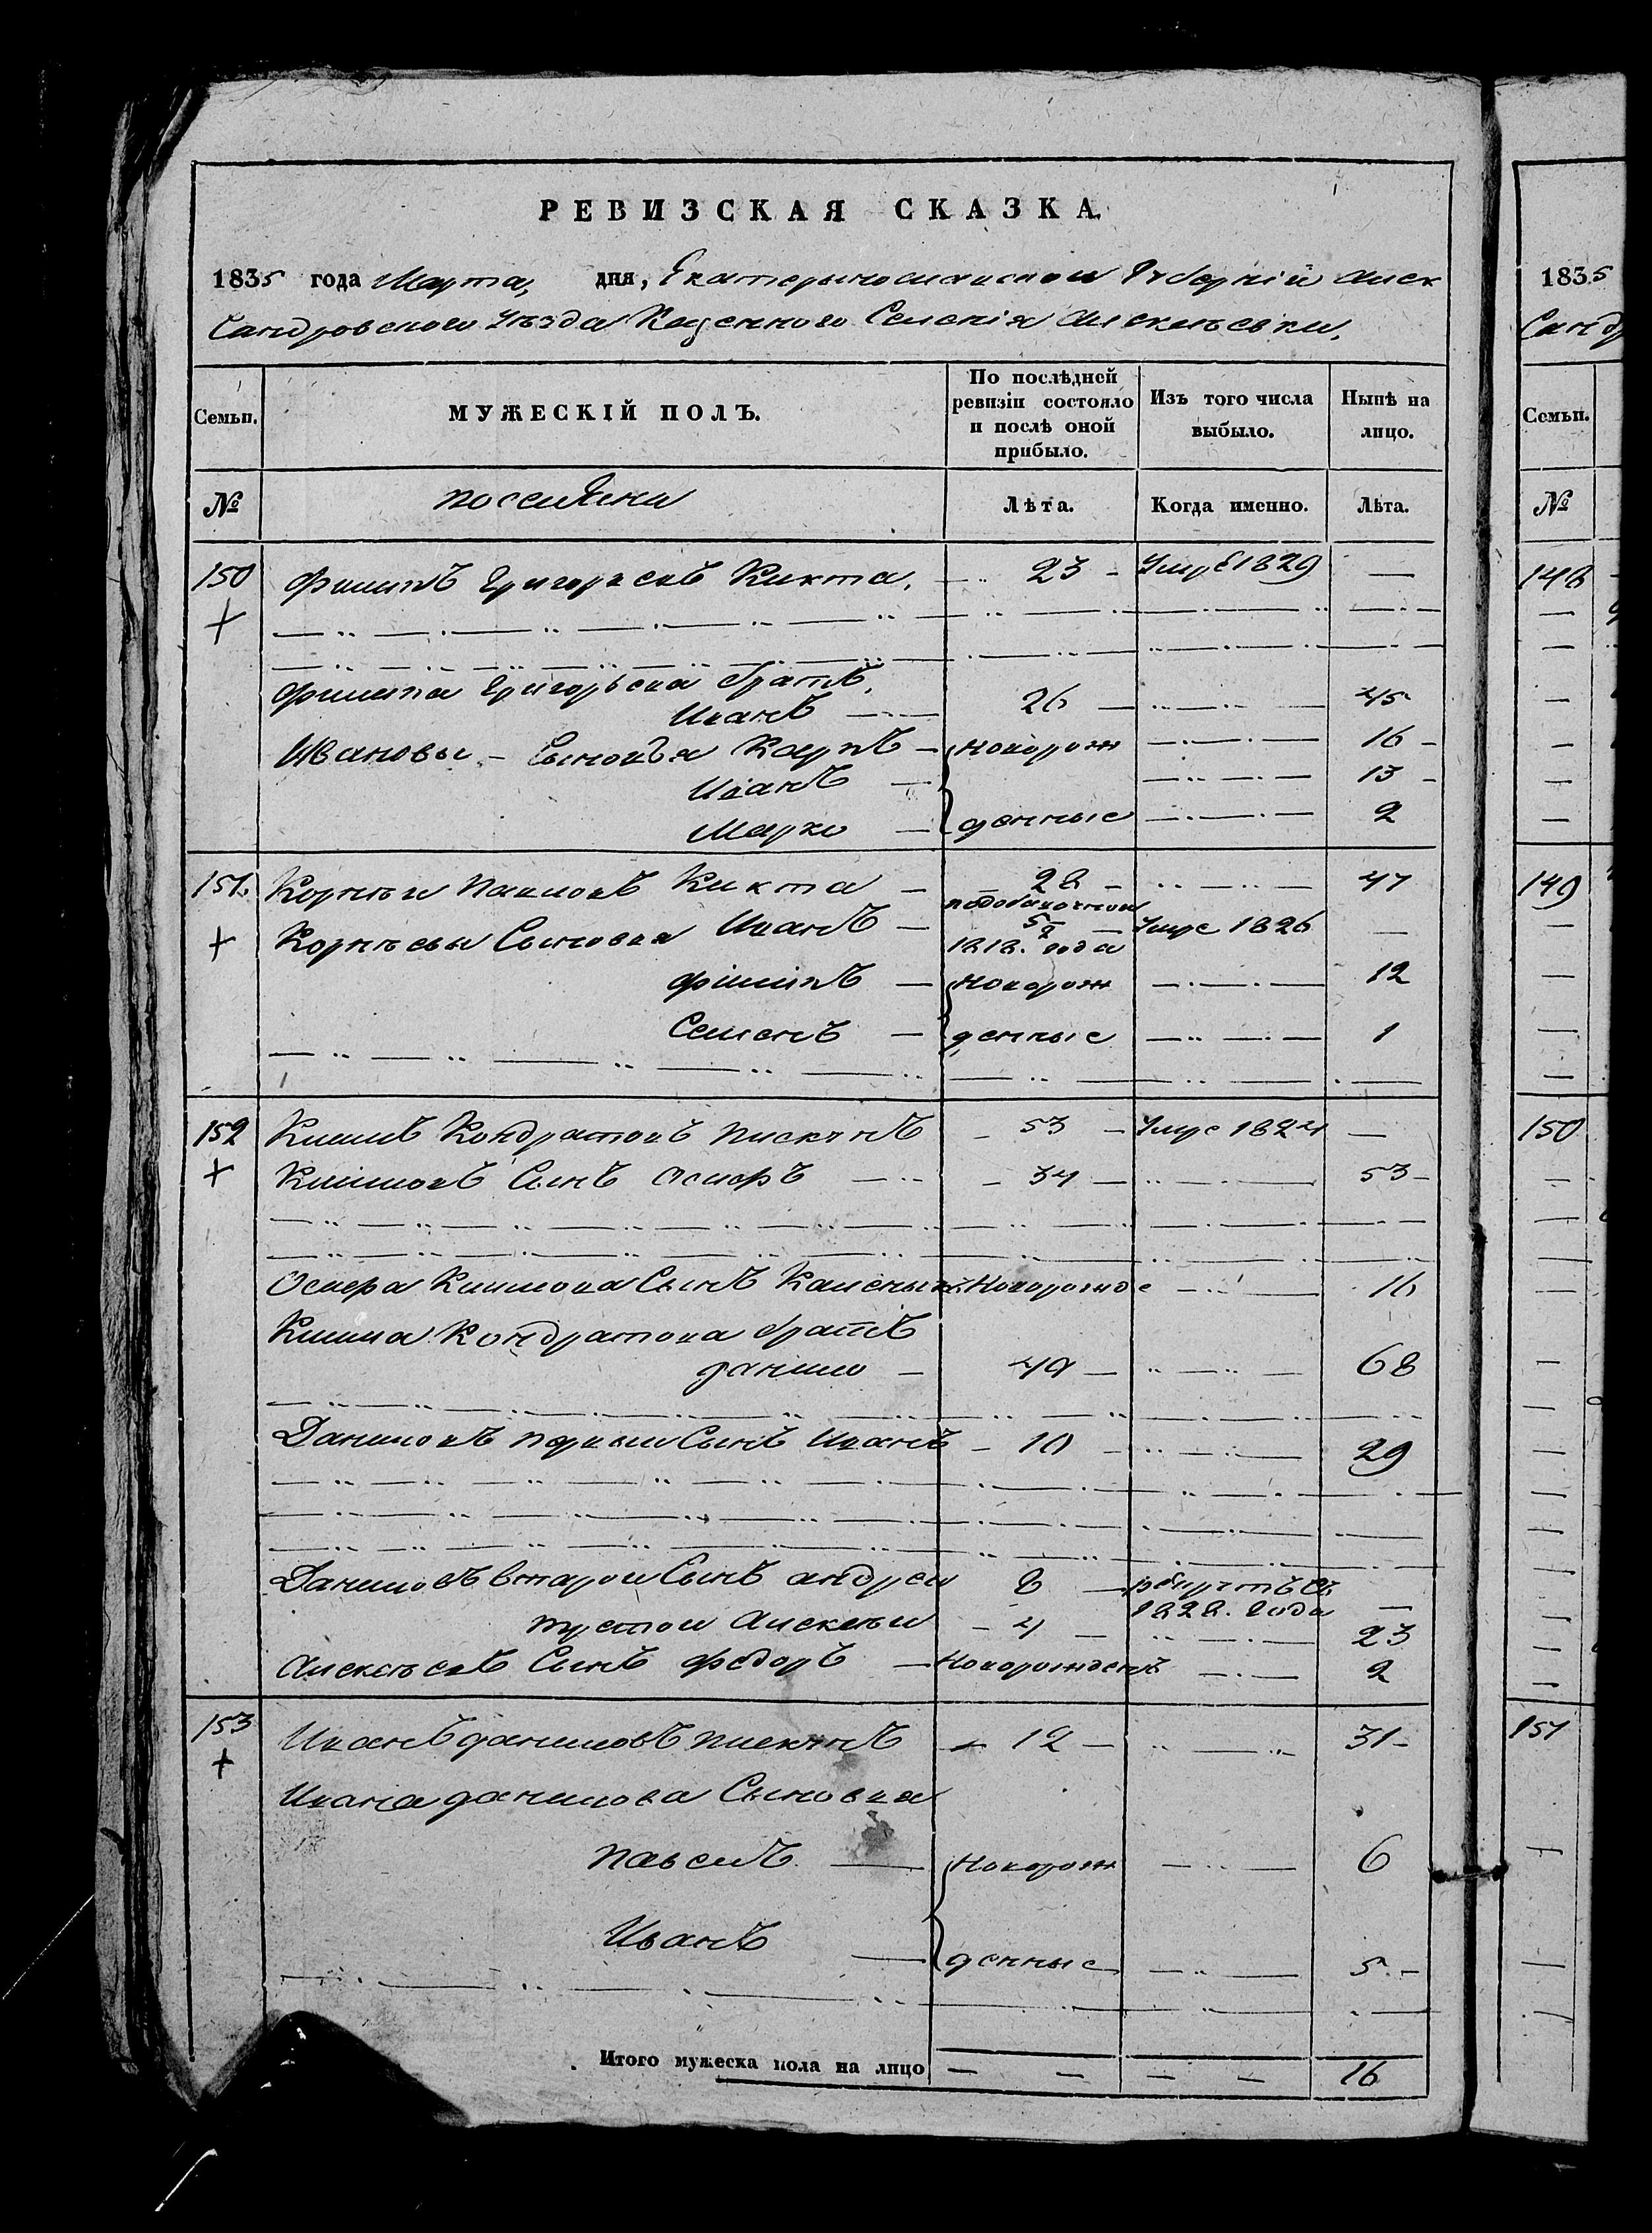 РЕВИЗСКАЯ СКАЗКА.
1835 года Марта, дня, Екатеринославской Губерніи Алек
Сандровского Уѣзда Казенного Селенія Алексѣевки.
Семьи. МУЖЕСКІЙ ПОЛЪ. По послѣдней ревизіи состояло и послѣ оной прибыло. Изъ того числа выбыло. Нынѣ на лицо.
№ поселяни Лѣта. Когда именно. Лѣта.
150 Филипъ Григорьевъ Кикта, 23 Умре 1829 —
Филипа Григорьева братъ,
Иванъ 26 45
Ивановы Сыновья Карпъ новорож 16
Иванъ 13
Марко денные 2
151. Корнѣи Павловъ Кикта 28 47
Корнѣевы Сыновья Иванъ 5 Умре 1826 —
1818. года
Филипъ новорож 12
Семенъ денные 1
152 Климъ Кондратовъ 53 Умре 1824 —
Климовъ Сынъ Осипъ 34 53
Осипа Климова Сынъ Новорожде 16
Клима Кондратова братъ
данило 49 68
Даниловъ первыи Сынъ Иванъ 10 29
Даниловъ второи Сынъ андреи 8
1828. Года —
третои Алексѣи 4 23
Алексѣевъ Сынъ Федоръ Новорожденъ 2
153 Иванъ даниловъ 12 31
Ивана данилова Сыновья
Павелъ новорож 6
Иванъ денные 5
Итого мужеска пола на лицо 16
1835
Санд
Семьи.
№
148
149
150
151